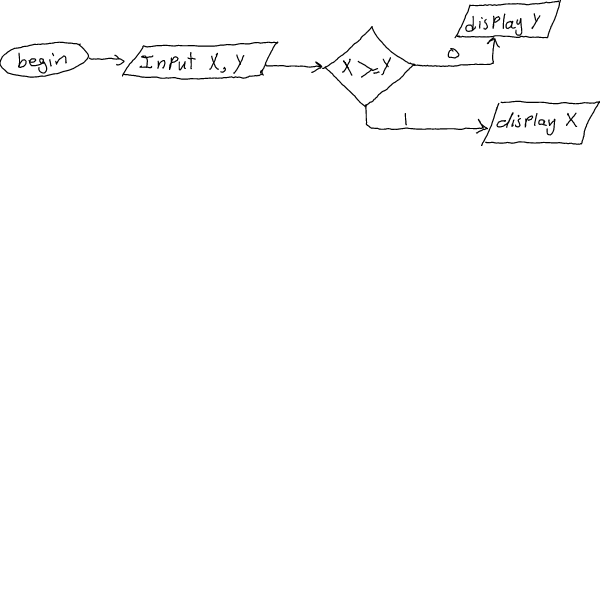 begin
Input X, Y
X >= Y
0
display Y
1
display X